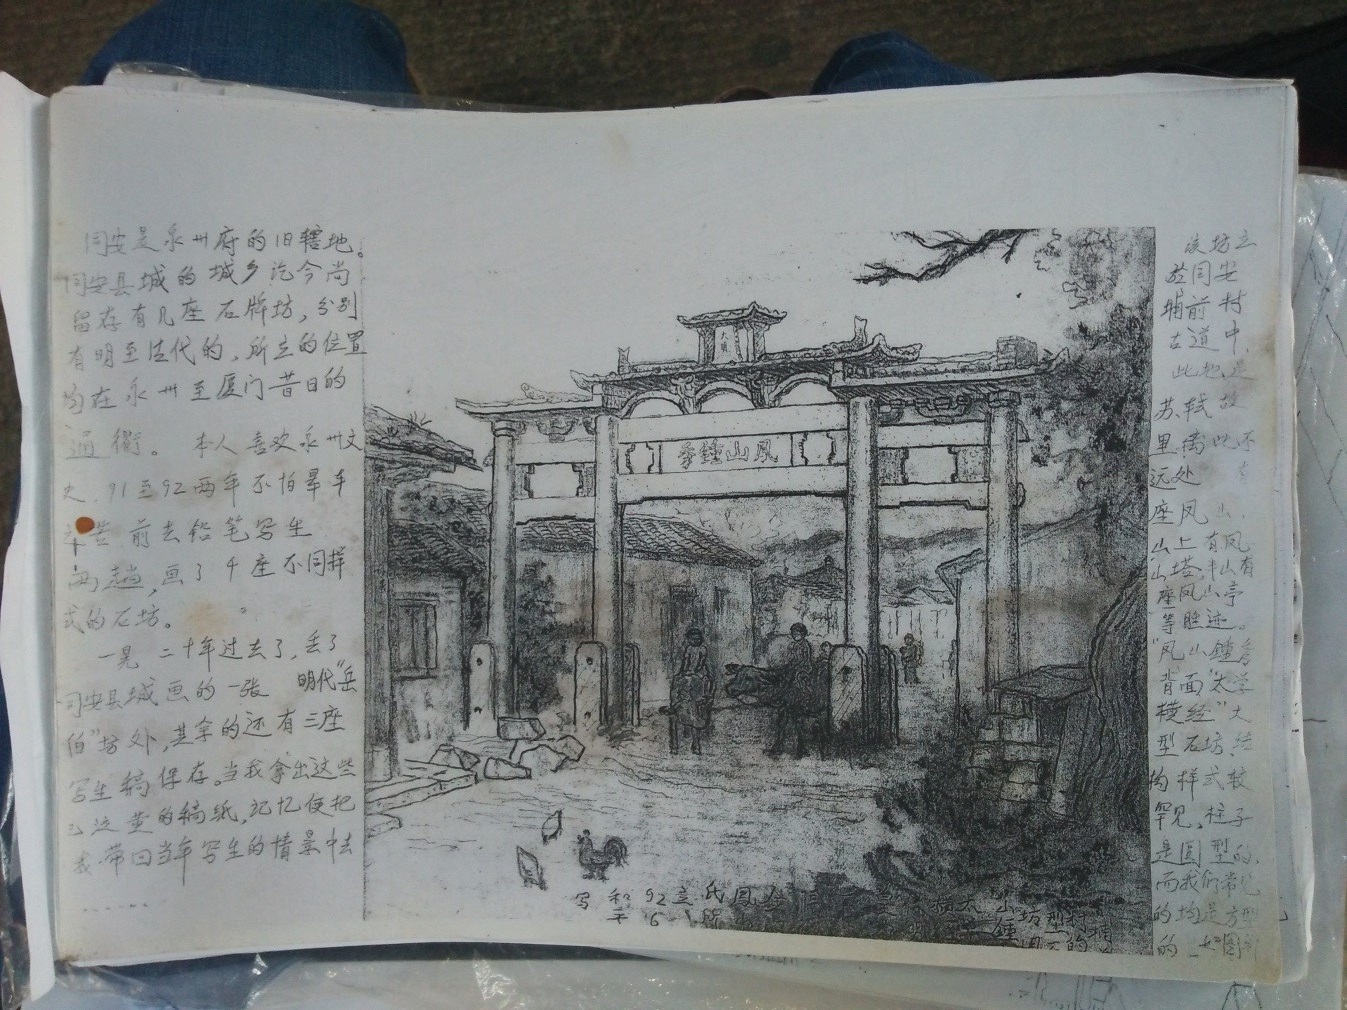 同安是泉州府的旧辖地。
同安县城的城乡迄今尚
留存有几座石牌坊,分别
有明至清代的,所立的位置
均在泉州至厦门昔日的
通衢。 本人喜欢泉州文
史,91至92两年不怕晕车
辛苦,前去铅笔写生
两趟,画了千座不同样
式的石坊。
一晃二十年过去了,丢了
同安县城画的一张 明代"岳
伯"坊外,其拿的还有三座
写生稿保存。当我拿出这些
的稿纸,记忆便把
我带回当年写生的情景中去
......
大明
凤山鍾秀
该坊立
在同安
埔前村
古道中,
此地是
苏轼故
里,离此不
远处
座凤山,
山上有凤
山塔,半山有
座凤山亭
等胜迹。
"凤山鍾秀
背面"太学
横经"大
型石坊,结
构样式较
罕见,柱子
是圆型的,
而我们常见
的均是方型
的
92
6
写